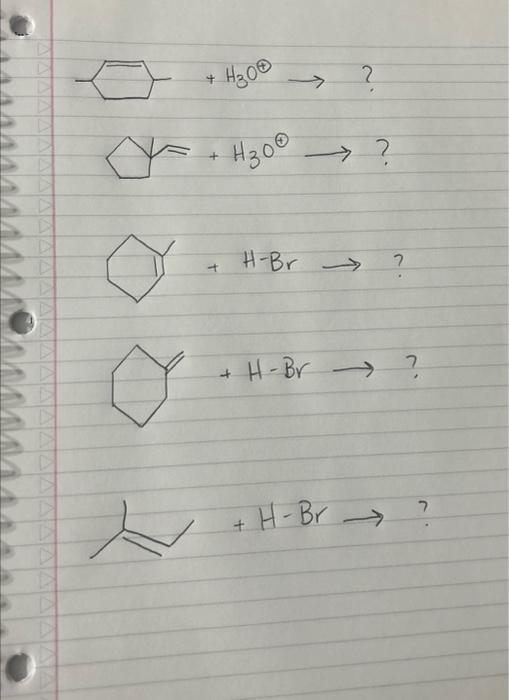 + H3O⊕ → ?
+ H3O⊕ → ?
+ H-Br → ?
+ H-Br → ?
+ H-Br → ?